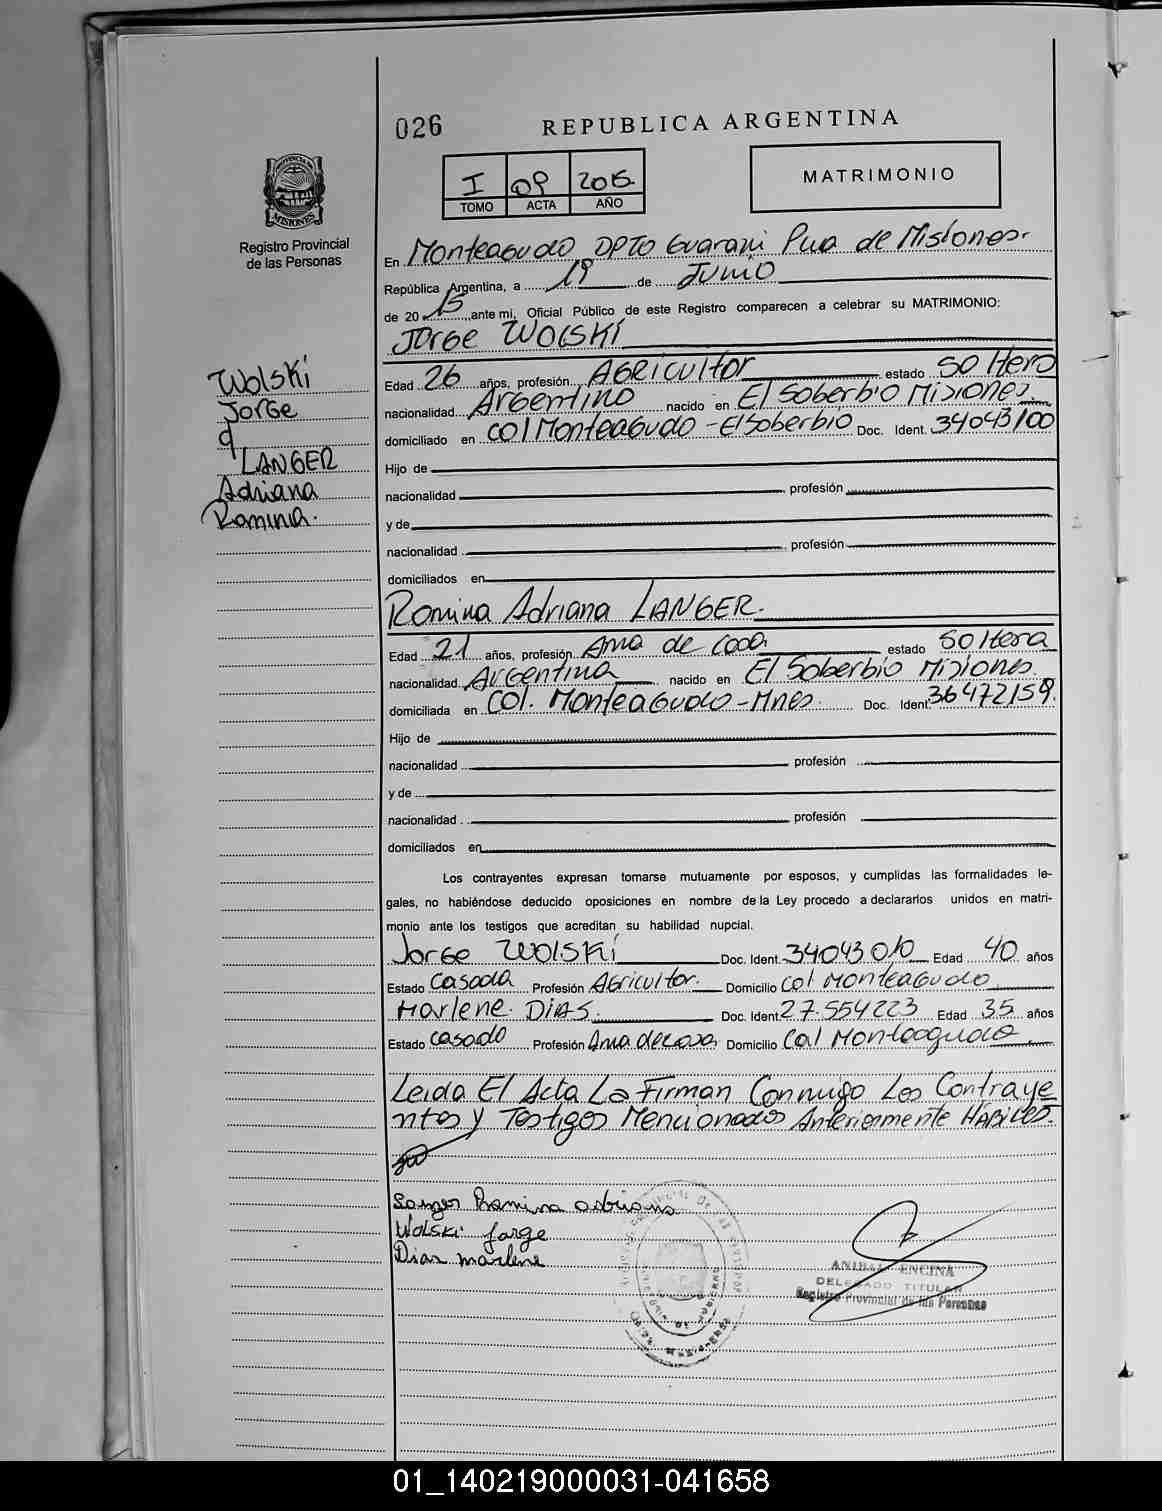 026
REPUBLICA ARGENTINA
PROVINCIA DE
MISIONES
Registro Provincial
de las Personas
I 09 2015.
TOMO ACTA AÑO
MATRIMONIO
En Monteagudo DPTO Guarani Pua de Misiones.
República Argentina, a 19 de Junio
de 20 15 ,ante mi, Oficial Público de este Registro comparecen a celebrar su MATRIMONIO:
Jorge WOLSKi
Wolski
Jorge
LANGER
Adriana
Romina.
Edad 26 años, profesión AGRicultor estado SOltero
nacionalidad Argentino nacido en El Soberbio Misiones.
domiciliado en COl Monteagudo - El Soberbio Doc. Ident. 34043100
Hijo de
nacionalidad profesión
y de
nacionalidad profesión
domiciliados en
Romina Adriana LANGER.
Edad 21 años, profesión Ama de casa estado SOltera
nacionalidad Argentina nacido en El Soberbio Misiones.
domiciliada en COl. Monteagudo - Mnes. Doc. Ident. 36472159.
Hijo de
nacionalidad profesión
y de
nacionalidad profesión
domiciliados en
Los contrayentes expresan tomarse mutuamente por esposos, y cumplidas las formalidades le-
gales, no habiéndose deducido oposiciones en nombre de la Ley procedo a declararlos unidos en matri-
monio ante los testigos que acreditan su habilidad nupcial.
Jorge WOlSKi Doc. Ident. Edad 40 años
Estado Casada Profesión AGRicultor. Domicilio Col Monteagudo
Marlene DIAS. Doc. Ident 27.554223 Edad 35 años
Estado casado Profesión Ama de casa Domicilio Col Monteagudo
Leida El Acta La Firman Conmigo Los Contraye
ntes y Testigos Mencionados Anteriormente HABiLES.
Langer Romina adriana
Wolski Jorge
Dias marlene
ANIBAL ENCINA
DELEGADO TITULAR
Registro Provincial de las Personas
01_140219000031-041658